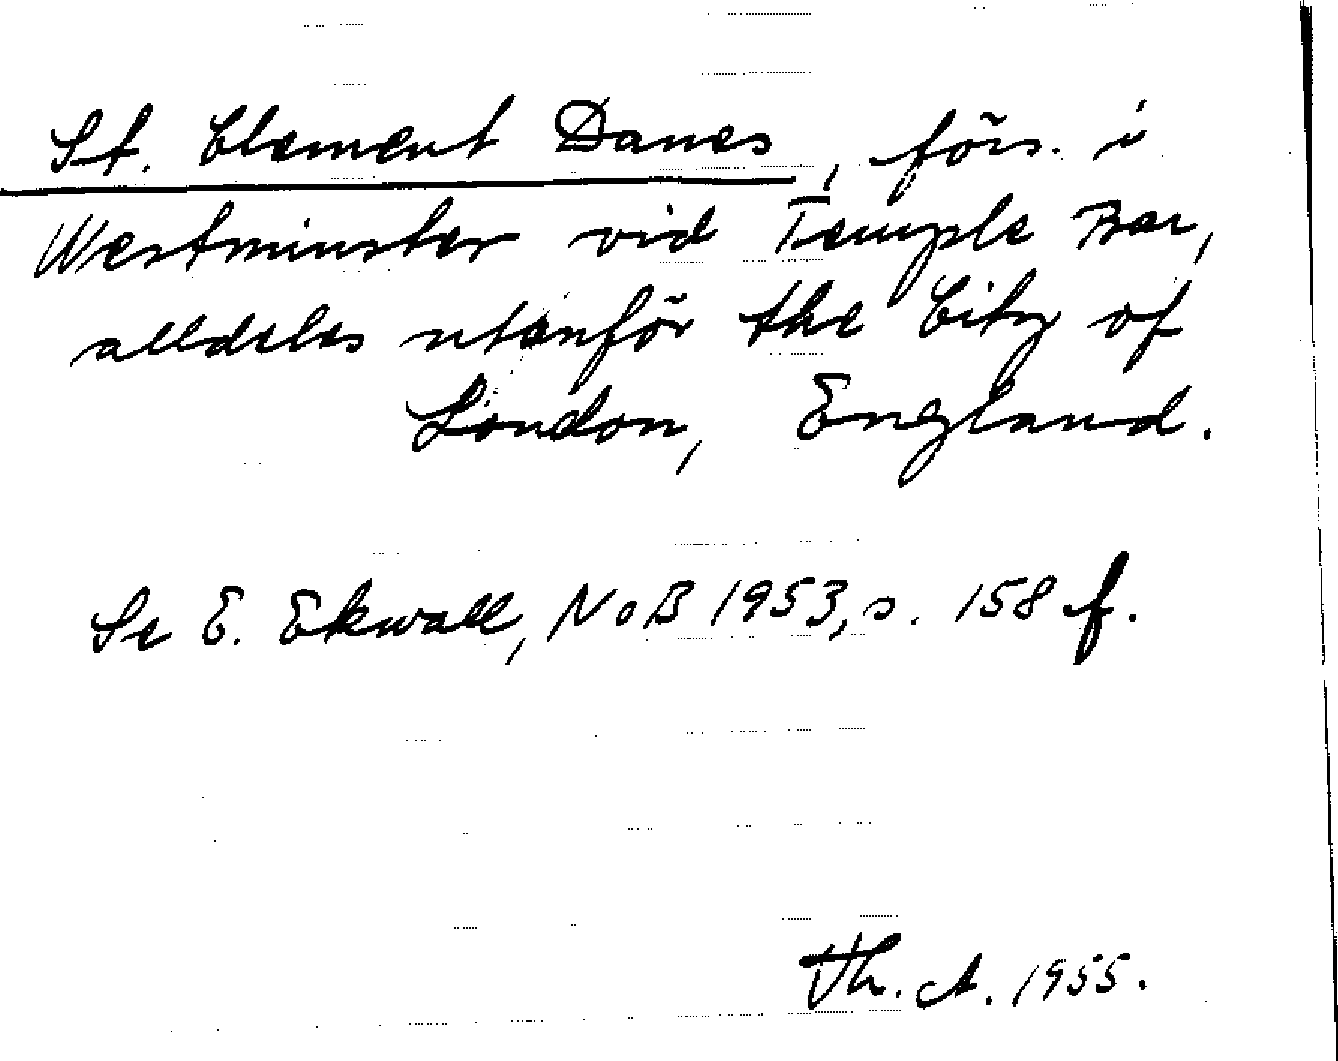 St. Clement Danes, förs. i
Westminster vid Temple Bar,
alldeles utanför the City of
London, England.
Se E. Ekwall, NoB 1953, s. 158 f.
Th. A. 1955.